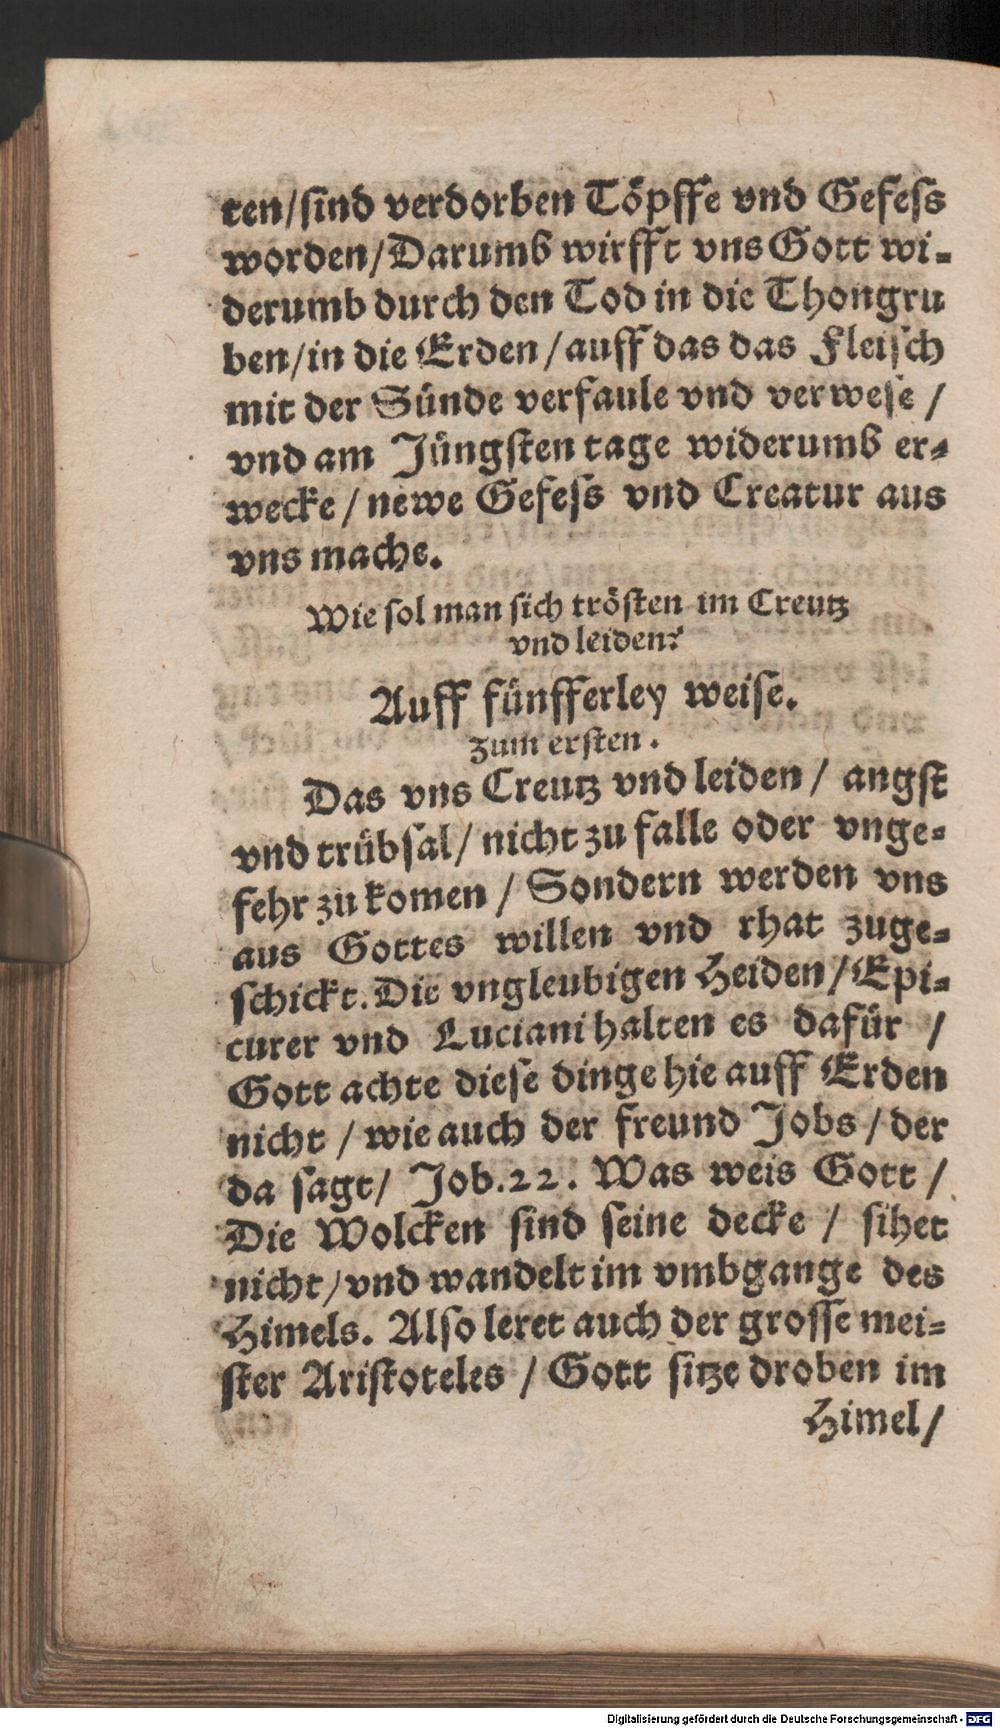 ten/sind verdorben Töpffe vnd Gefess
worden/Darumb wirfft vns Gott wi-
derumb durch den Tod in die Thongru
ben/in die Erden/auff das das Fleisch
mit der Sünde verfaule vnd verwese/
vnd am Jüngsten tage widerumb er-
wecke/newe Gefess vnd Creatur aus
vns mache.
Wie sol man sich trösten im Creutz
vnd leiden?
Auff fünfferley weise.
Zum ersten.
Das vns Creutz vnd leiden/ angst
vnd trübsal/ nicht zu falle oder vnge-
fehr zu komen/ Sondern werden vns
aus Gottes willen vnd rhat zuge-
schickt. Die vngleubigen Heiden/Epi-
curer vnd Luciani halten es dafür/
Gott achte diese dinge hie auff Erden
nicht/ wie auch der freund Jobs/ der
da sagt/ Job.22. Was weis Gott/
Die Wolcken sind seine decke/ sihet
nicht/vnd wandelt im vmbgange des
Himels. Also leret auch der grosse mei-
ster Aristoteles/ Gott sitze droben im
Himel/
Digitalisierung gefördert durch die Deutsche Forschungsgemeinschaft - DFG